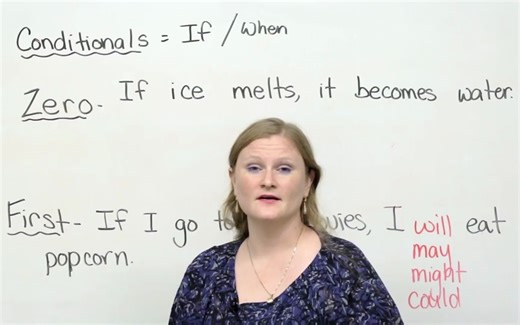 Conditionals = If / when
Zero - If ice melts, it becomes water.
First - If I go to vies, I will eat
may
popcorn.
might
could